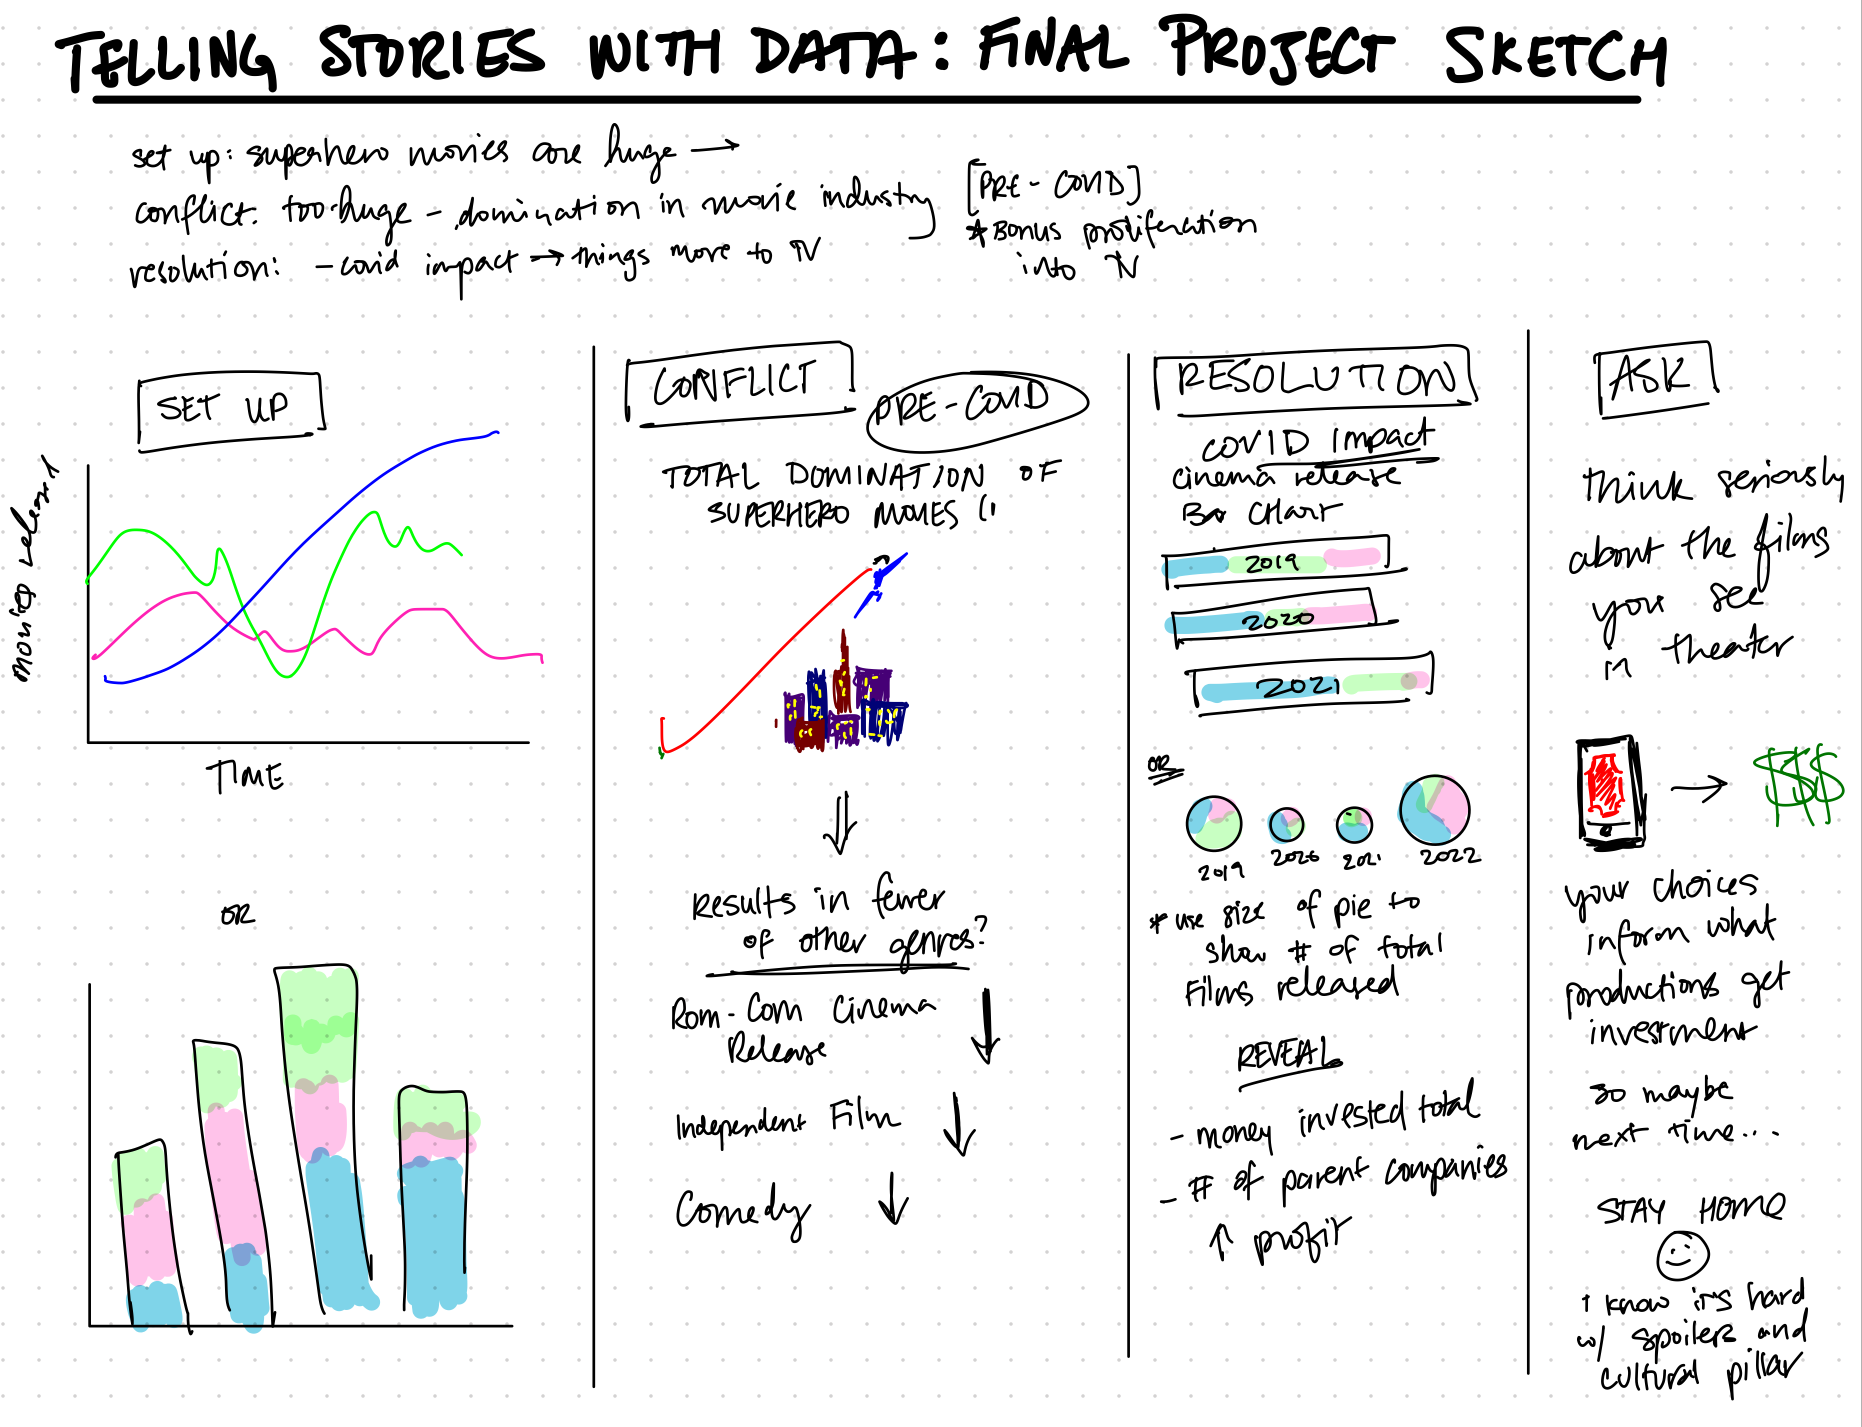 TELLING STORIES WITH DATA: FINAL PROJECT SKETCH
set up: superhero movies are huge →
conflict. too huge - domination in movie industry
resolution: - covid impact → things move to TV
[PRE - COVID]
* Bonus proliferation
into TV
SET UP
movies released
TIME
OR
CONFLICT
PRE-COVID
TOTAL DOMINATION OF
SUPERHERO MOVIES
Results in fewer
of other genres?
Rom-Com Cinema
Release
Independent Film
Comedy
RESOLUTION
COVID Impact
Cinema release
Bar CHART
2019
2020
2021
OR
2019
2020
2021
2022
* use size of pie to
show # of total
Films released
REVEAL
- money invested total
- # of parent companies
↑ profit
ASK
think seriously
about the films
you see
in theater
→ $$$
your choices
inform what
productions get
investment
so maybe
next time...
STAY HOME
I know it's hard
w/ spoilers and
cultural pillar